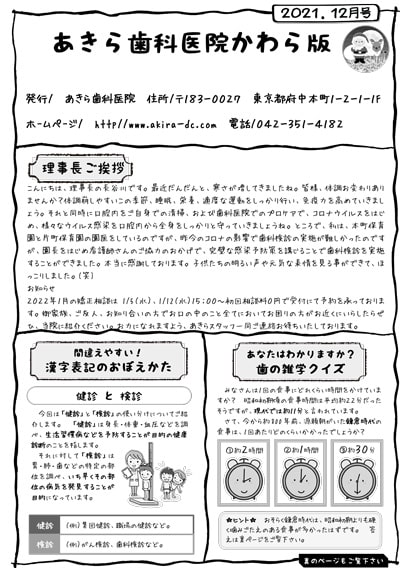 2021.12月号
あきら歯科医院かわら版
発行/ あきら歯科医院 住所/〒183-0027 東京都府中本町1-2-1-1F
ホームページ/ http//www.akira-dc.com 電話/042-351-4182
理事長ご挨拶
こんにちは、理事長の長谷川です。最近だんだんと、寒さが増してきましたね。皆様、体調お変わりあり
ませんか?体調崩しやすいこの季節、睡眠、栄養、適度な運動をしっかり行い、免疫力を高めていきまし
ょう。それと同時に口腔内をご自身での清掃、および歯科医院でのプロケアで、コロナウイルスをはじ
め、様々なウイルス感染を口腔内から全身をしっかりと守っていきましょうね。ところで、私は、本町保育
園と片町保育園の園医をしているのですが、昨今のコロナの影響で歯科検診の実施が難しかったのです
が、園長をはじめ看護師さんのご協力のおかげで、完璧な感染予防策を講じることで歯科検診を実施
することができました。本当に感謝しております。子供たちの明るい声や元気な表情を見る事ができて、ほ
っこりしました。(笑)
お知らせ
2022年1月の矯正相談は 1/5(水)、1/12(水)15:00〜初回相談料0円で受付にて予約を承っておりま
す。御家族、ご友人、お知り合いの方でお口の中のこと全てにおいてお困りの方がお近くにいらしたらぜ
ひ、当院に紹介ください。お力になれますよう、あきらスタッフ一同ご連絡お待ちいたしております。
間違えやすい!
漢字表記のおぼえかた
健診 と 検診
今回は「健診」と「検診」の使い分けについてご紹
介します。 「健診」は身長・体重・血圧などを調
べ、生活習慣病などを予防することが目的の健康
診断のことを指します。
それに対して「検診」は
胃・肺・歯などの特定の部
位を調べ、いち早くその部
位の病気を発見することが
目的になっています。
健診 (例)集団健診、職場の健診など。
検診 (例)がん検診、歯科検診など。
あなたはわかりますか?
歯の雑学クイズ
みなさんは1回の食事にどれくらい時間をかけています
か? 昭和初期の食事時間は平均約22分だった
そうですが、現代では約11分と言われています。
さて、今から約800年前、源頼朝がいた鎌倉時代の
食事は、1回あたりどのくらいかかったでしょうか?
①約2時間 ②約1時間 ③約30分
★ヒント★ おそらく鎌倉時代は、昭和初期よりも硬
く噛みごたえのある食事が多かったはずです。 答
えは裏ページをご覧下さい。
裏のページもご覧下さい